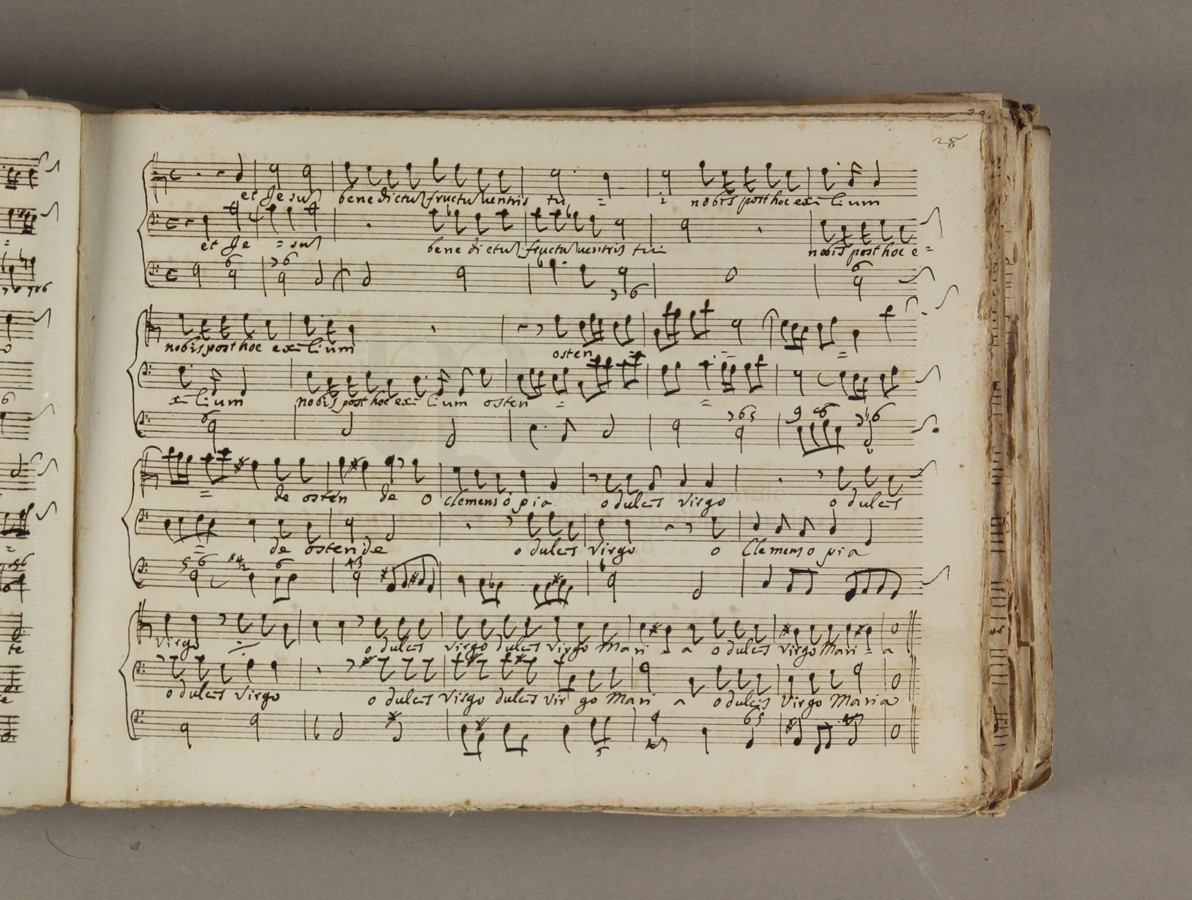 28
et Jesus benedictus fructus ventris tui nobis post hoc exilium
et Je = sus benedictus fructus ventris tui nobis post hoc e =
nobis post hoc exilium osten
xilium nobis post hoc exilium osten
de osten de o clemens o pia o dulcis virgo o dulcis
de ostende o dulcis virgo o Clemens o pia
virgo o dulcis virgo dulcis virgo Mari = a o dulcis virgo Mari = a
o dulcis virgo o dulcis virgo dulcis virgo Mari a o dulcis virgo Maria